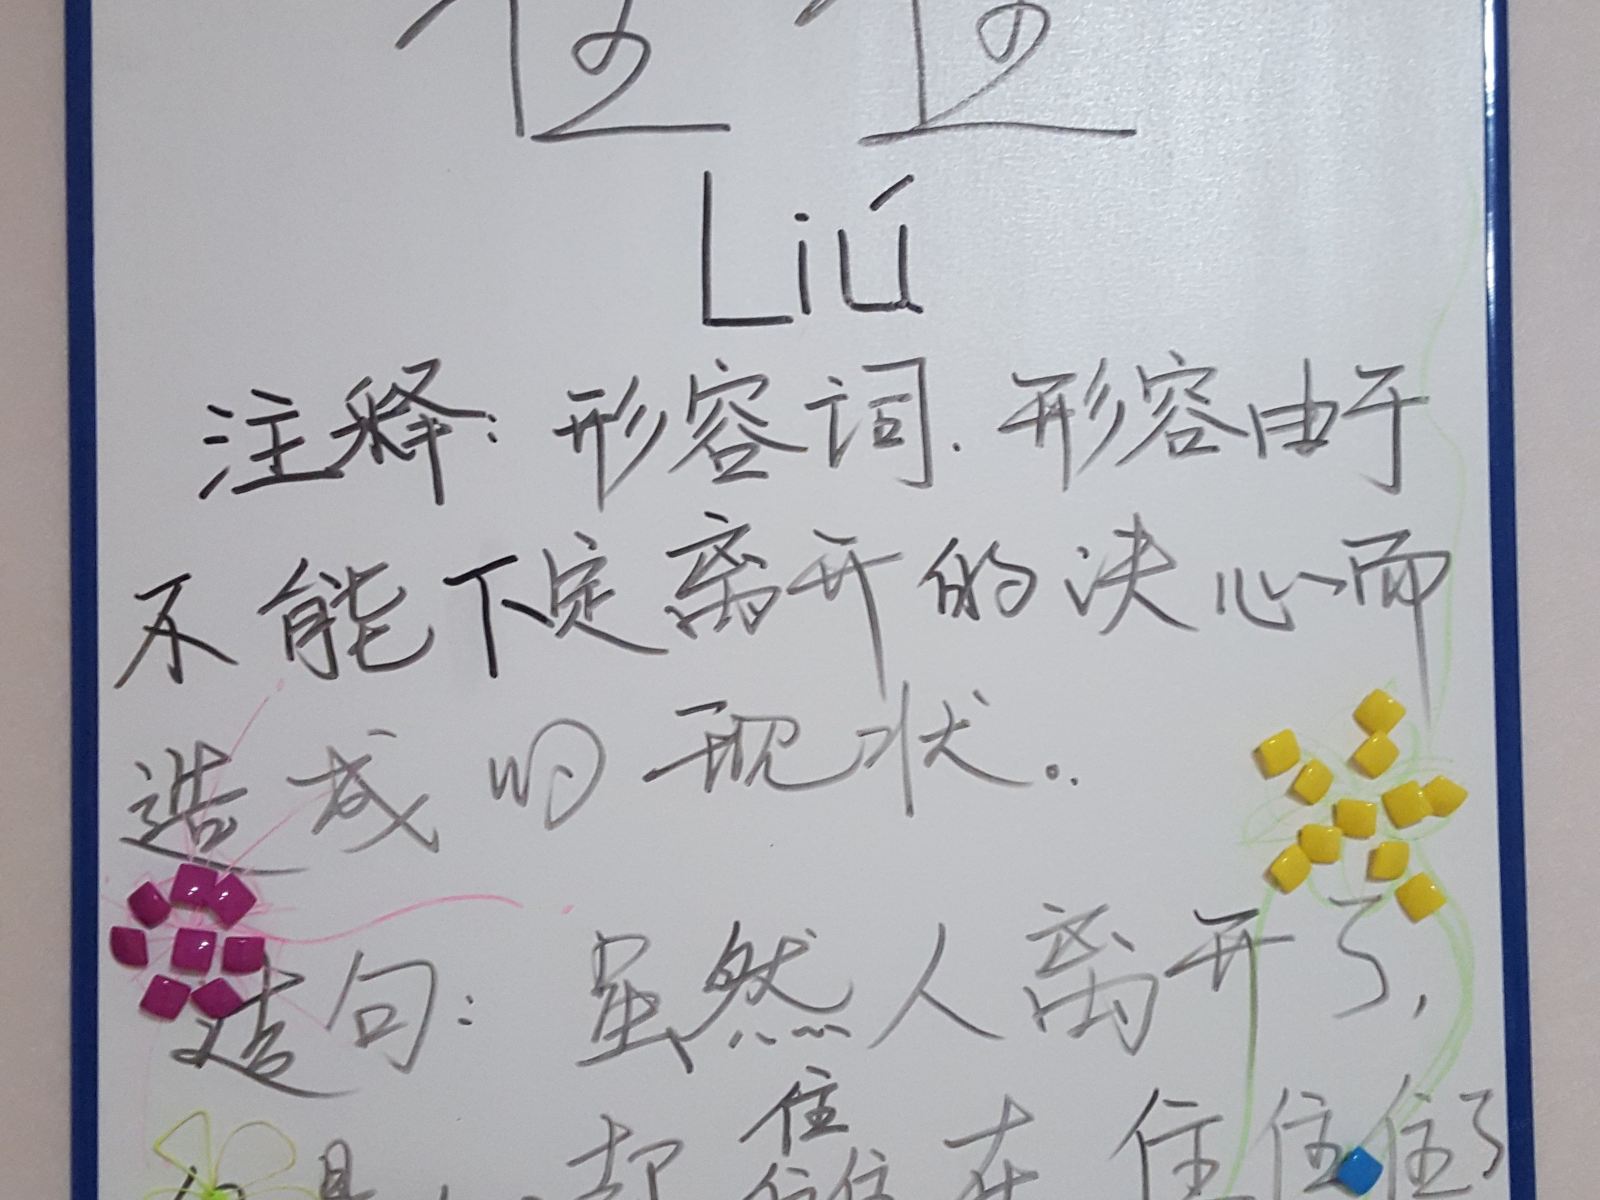 Liú
注释：形容词.形容由于
不能下定离开的决心而
造成的现状。
造句：虽然人离开了，
住
在住住住了